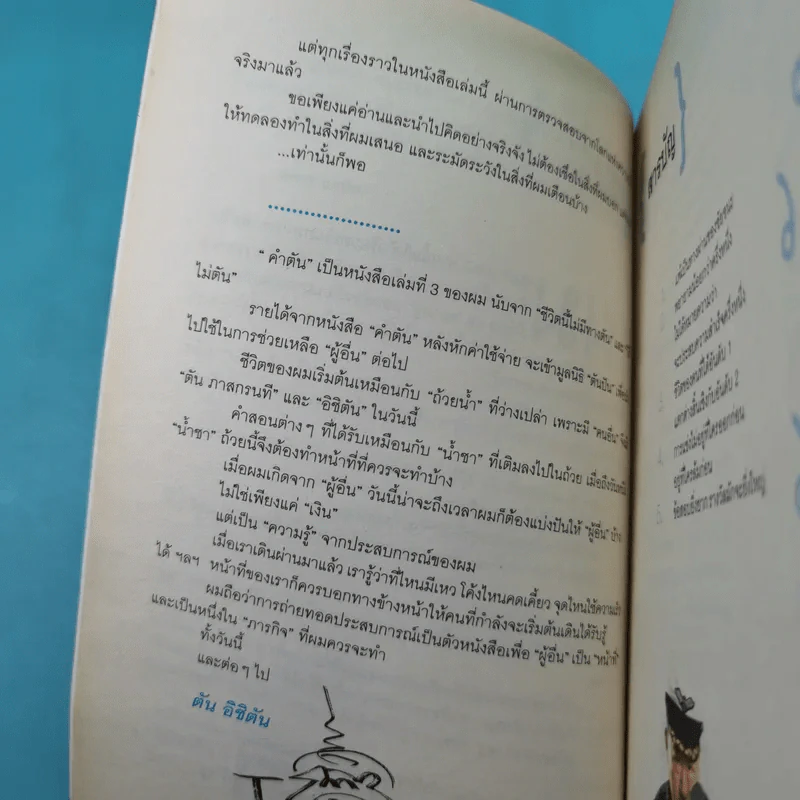 แต่ทุกเรื่องราวในหนังสือเล่มนี้ ผ่านการตรวจสอบจากโลกแห่งความ
จริงมาแล้ว
ขอเพียงแค่อ่านและนำไปคิดอย่างจริงจัง ไม่ต้องเชื่อในสิ่งที่ผมบอก
ให้ทดลองทำในสิ่งที่ผมเสนอ และระมัดระวังในสิ่งที่ผมเตือนบ้าง
...เท่านั้นก็พอ
“ คำตัน” เป็นหนังสือเล่มที่ 3 ของผม นับจาก “ชีวิตนี้ไม่มีทางตัน”
ไม่ตัน”
รายได้จากหนังสือ “คำตัน” หลังหักค่าใช้จ่าย จะเข้ามูลนิธิ “ตันปัน”
ไปใช้ในการช่วยเหลือ “ผู้อื่น” ต่อไป
ชีวิตของผมเริ่มต้นเหมือนกับ “ถ้วยน้ำ” ที่ว่างเปล่า เพราะมี “คนอื่น”
“ตัน ภาสกรนที” และ “อิชิตัน” ในวันนี้
คำสอนต่างๆ ที่ได้รับเหมือนกับ “น้ำชา” ที่เติมลงไปในถ้วย เมื่อถึงวันหนึ่ง
“น้ำชา” ถ้วยนี้จึงต้องทำหน้าที่ที่ควรจะทำบ้าง
เมื่อผมเกิดจาก “ผู้อื่น” วันนี้น่าจะถึงเวลาผมก็ต้องแบ่งปันให้ “ผู้อื่น” บ้าง
ไม่ใช่เพียงแค่ “เงิน”
แต่เป็น “ความรู้” จากประสบการณ์ของผม
เมื่อเราเดินผ่านมาแล้ว เรารู้ว่าที่ไหนมีเหว โค้งไหนคดเคี้ยว จุดไหนใช้ความเร็ว
ได้ ฯลฯ หน้าที่ของเราก็ควรบอกทางข้างหน้าให้คนที่กำลังจะเริ่มต้นเดินได้รับรู้
ผมถือว่าการถ่ายทอดประสบการณ์เป็นตัวหนังสือเพื่อ “ผู้อื่น” เป็น “หน้าที่”
และเป็นหนึ่งใน “ภารกิจ” ที่ผมควรจะทำ
ทั้งวันนี้
และต่อๆ ไป
ตัน อิชิตัน
สารบัญ
พยายามน้อยกว่าครึ่งหนึ่ง
ไม่ได้หมายความว่า
จะประสบความสำเร็จครึ่งหนึ่ง
ชีวิตของคนที่ได้อันดับ 1
แตกต่างสิ้นเชิงกับอันดับ 2
การแข่งไม่อยู่ที่ใครออกก่อน
อยู่ที่ใครล้มก่อน
ข้อสอบยิ่งยาก รางวัลมักจะยิ่งใหญ่